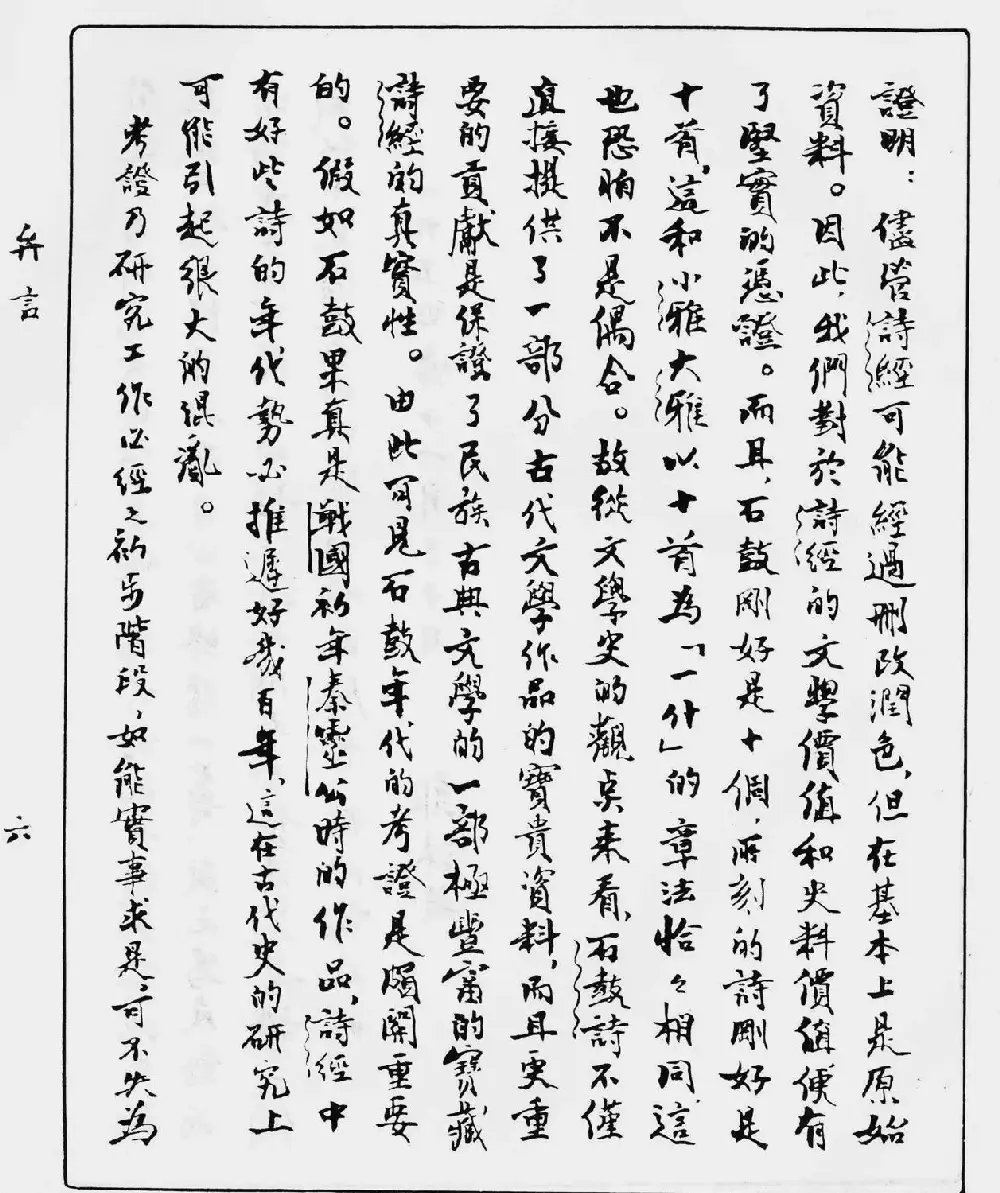 證明：儘管詩經可能經過刪改潤色，但在基本上是原始
資料。因此，我們對於詩經的文學價值和史料價值便有
了堅實的憑證。而且，石鼓剛好是十個，所刻的詩剛好是
十首，這和小雅大雅以十首為「一什」的章法恰々相同，這
也恐怕不是偶合。故從文學史的觀点來看，石鼓詩不僅
直接提供了一部分古代文學作品的寶貴資料，而且更重
要的貢獻是保證了民族古典文學的一部極豐富的寶藏
詩經的真實性。由此可見石鼓年代的考證是頗關重要
的。假如石鼓果真是戰國初年秦靈公時的作品，詩經中
有好些詩的年代勢必推遲好幾百年，這在古代史的研究上
可能引起很大的混亂。
考證乃研究工作必經之初步階段，如能實事求是，可不失為
弁言
六